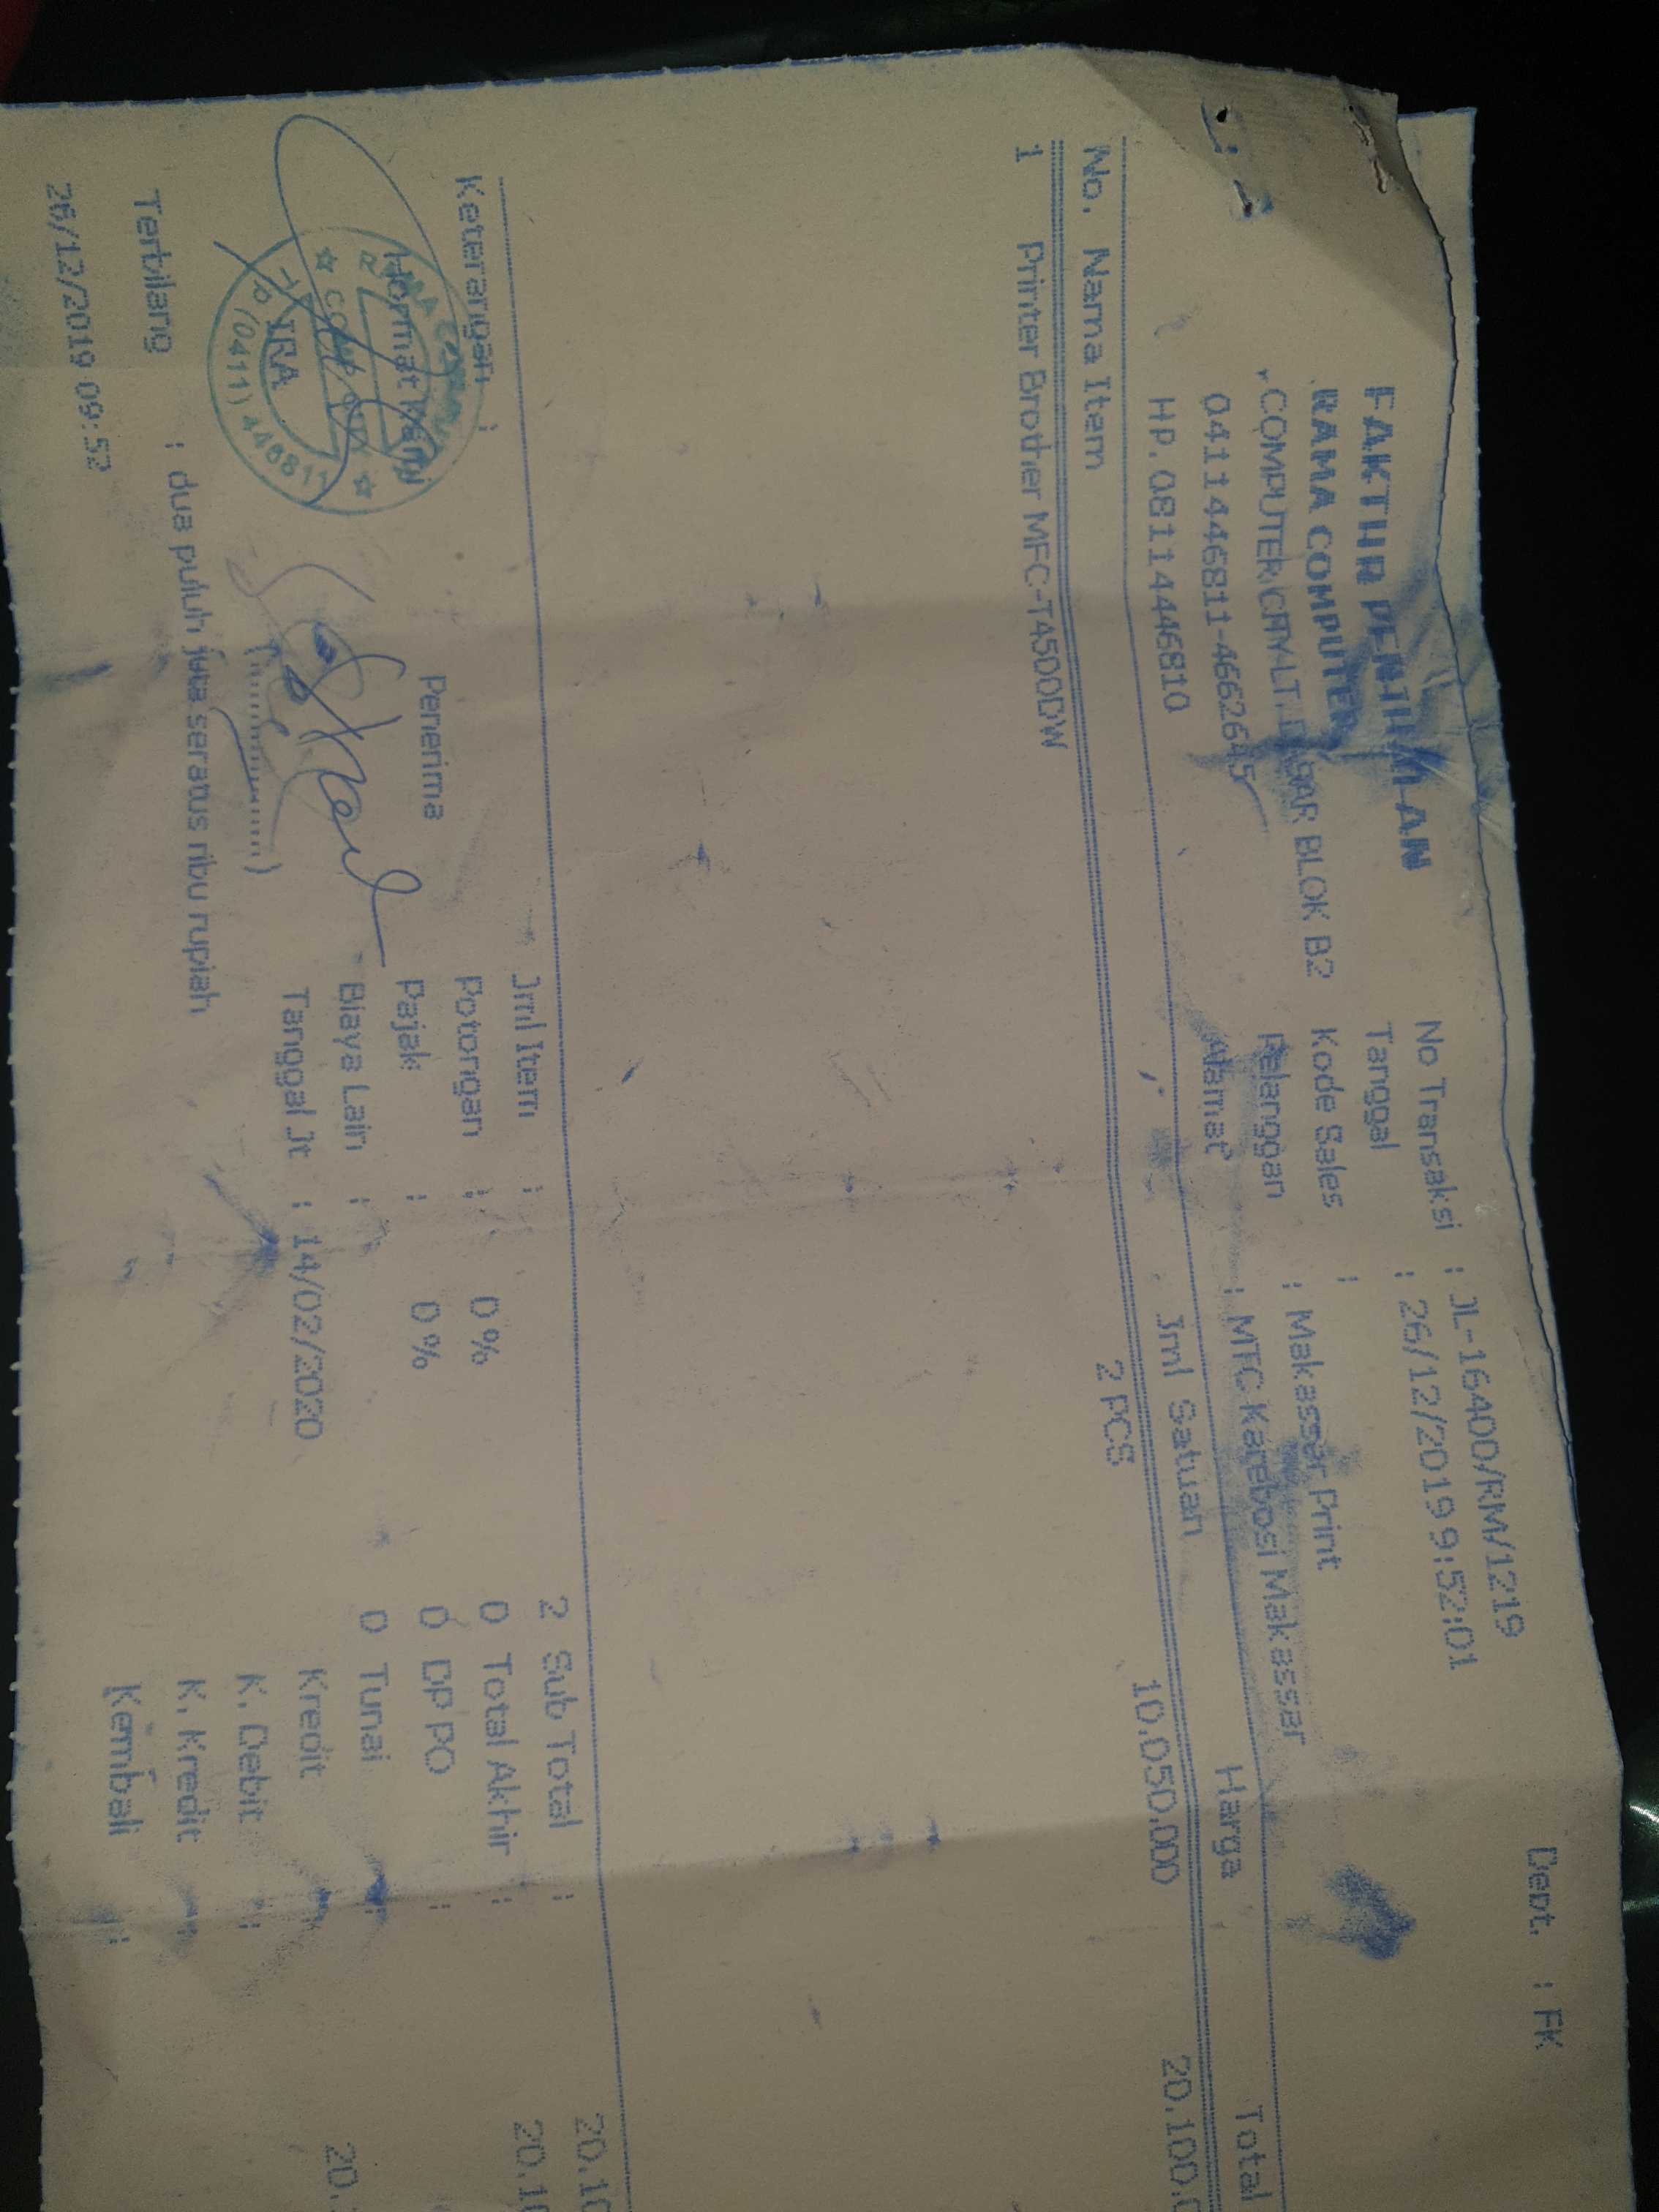 Dept. : FK
FAKTUR PENJUALAN
No Transaksi : JL-16400/RM/1219
RAMA COMPUTER
Tanggal : 26/12/2019 9:52:01
COMPUTER CITY LT. DASAR BLOK B2
Kode Sales :
04114446811-4662645
Pelanggan : Makassar Print
HP. 08114446810
Alamat : MTC Karebosi Makassar
No. Nama Item Jml Satuan Harga Total
1 Printer Brother MFC-T4500DW 2 PCS 10.050.000 20.100.0
Keterangan :
Jml Item : 2 Sub Total : 20.10
Hormat Kami Penerima
Potongan : 0 % 0 Total Akhir : 20.10
Pajak : 0 % 0 DP PO :
Biaya Lain : 0 Tunai :
Tanggal Jt : 14/02/2020 Kredit : 20.
K. Debit :
K. Kredit :
Kembali :
(..............)
RAMA COMPUTER
IRA
(0411) 446811
Terbilang : dua puluh juta seratus ribu rupiah
26/12/2019 09:52